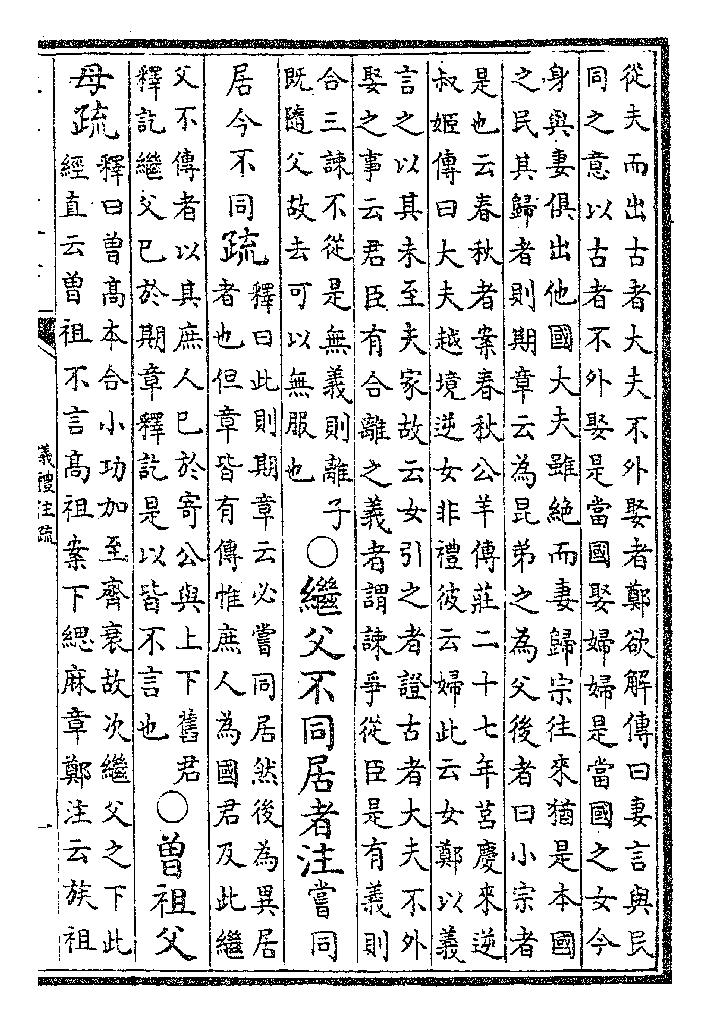 從夫而出古者大夫不外娶者鄭欲解傳曰妻言與民
同之意以古者不外娶是當國娶婦婦是當國之女今
身與妻俱出他國大夫雖絶而妻歸宗往來猶是本國
之民其歸者則期章云為昆弟之為父後者曰小宗者
是也云春秋者案春秋公羊傳莊二十七年莒慶來逆
叔姬傳曰大夫越境逆女非禮彼云婦此云女鄭以義
言之以其未至夫家故云女引之者證古者大夫不外
娶之事云君臣有合離之義者謂諫爭從臣是有義則
合三諫不從是無義則離子
既隨父故去可以無服也
○繼父不同居者注嘗同
居今不同疏
釋曰此則期章云必嘗同居然後為異居
者也但章皆有傳惟庶人為國君及此繼
父不傳者以其庶人已於寄公與上下舊君
釋訖繼父已於期章釋訖是以皆不言也
○曾祖父
母疏
釋曰曾高本合小功加至齊衰故次繼父之下此
經直云曾祖不言高祖案下緦麻章鄭注云族祖
儀禮注疏